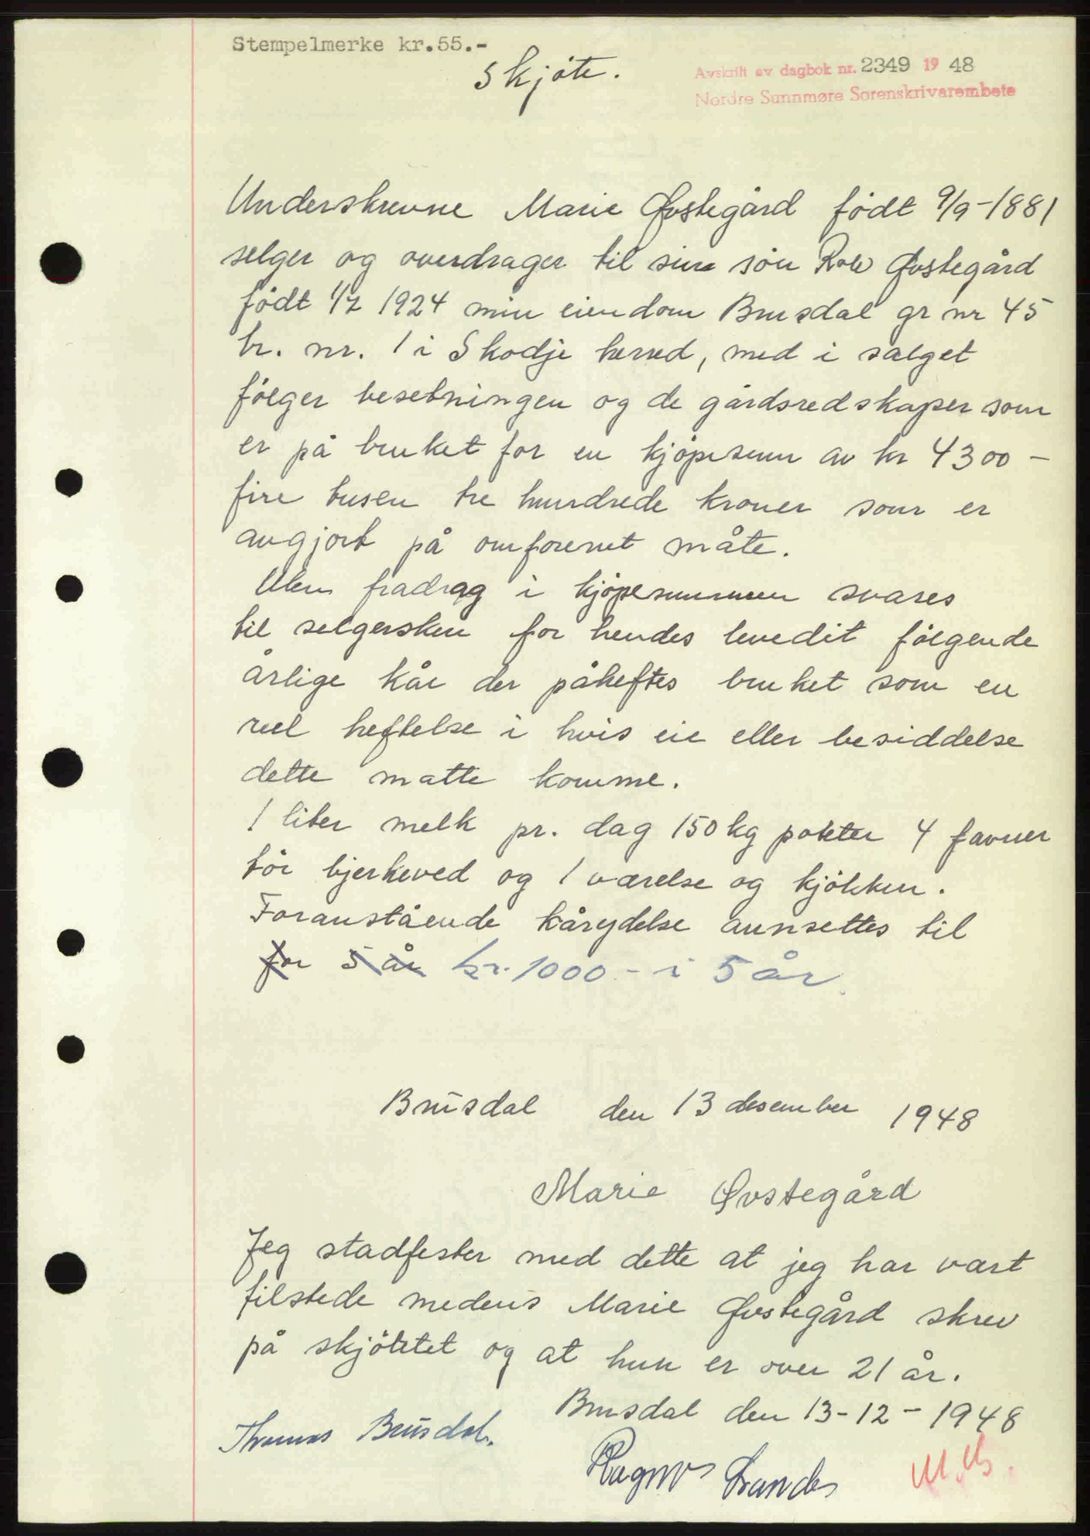 Stempelmerke kr.55.-
Skjöte.
Avskrift av dagbok nr. 2349 19 48
Nordre Sunnmøre Sorenskrivarembete
Underskrevne Marie Øvstegård födt 9/9-1881
selger og overdrager til sin sön Rolv Øvstegård
födt 1/7 1924 min eiendom Brusdal gr nr 45
br. nr. 1 i Skodje herred, med i salget
fölger besetningen og de gårdsredskaper som
er på bruket for en kjöpesum av kr 4300-
fire tusen tre hundrede kroner som er
avgjort på omforenet måte.
Uten fradrag i kjöpesummen svares
til selgersken for hendes levedit fölgende
årlige kår der påheftes bruket som en
reel heftelse i hvis eie eller besiddelse
dette matte komme.
1 liter melk pr. dag 150 kg poteter 4 favner
tör bjerkeved og 1 værelse og kjökken.
Foranstående kårydelse annsettes til
for 5 år kr. 1000 - i 5 år.
Brusdal den 13 desember 1948
Marie Øvstegård
Jeg stadfester med dette at jeg har vært
tilstede medens Marie Øvstegård skrev
på skjötetet og at hun er over 21 år.
Brusdal den 13-12-1948
Thomas Brusdal.
Ragnv Strandes